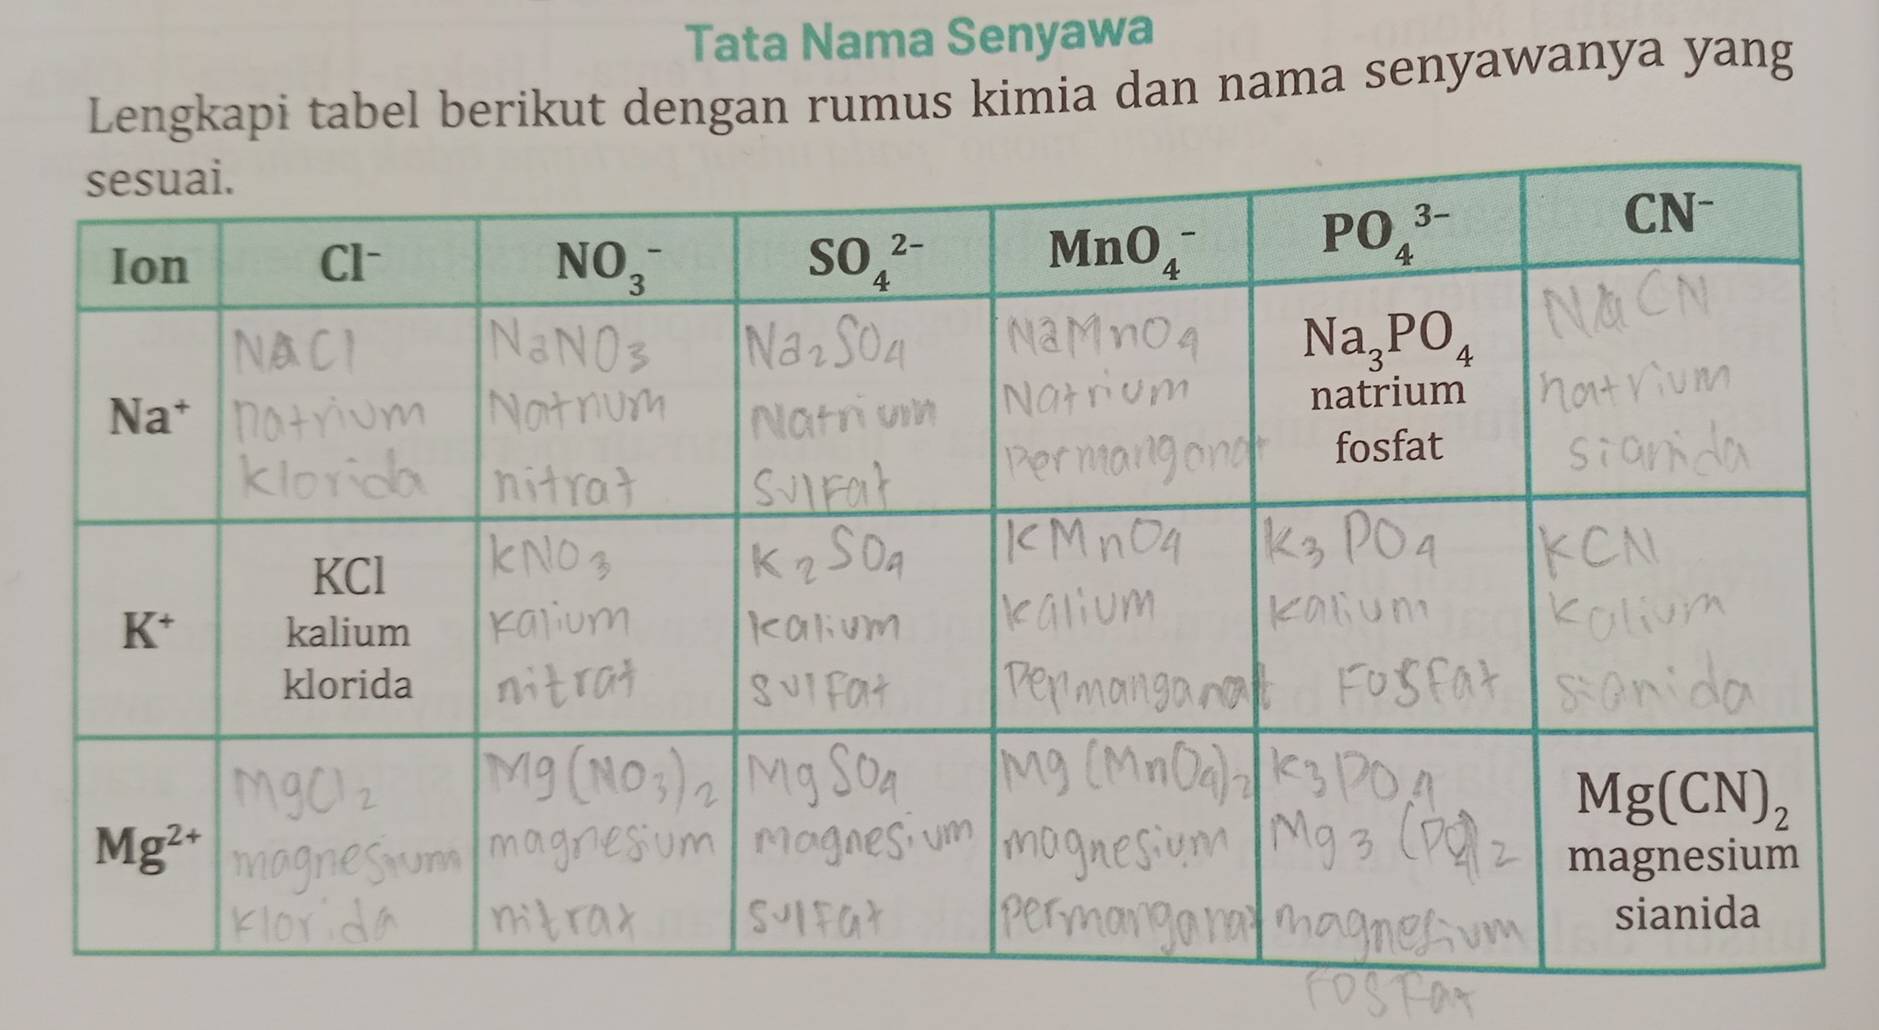 Tata Nama Senyawa
Lengkapi tabel berikut dengan rumus kimia dan nama senyawanya yang
sesuai.
Ion Cl⁻ NO₃⁻ SO₄²⁻ MnO₄⁻ PO₄³⁻ CN⁻
Na⁺
NaCl
natrium
klorida
NaNO₃
Natrium
nitrat
Na₂SO₄
Natrium
sulfat
NaMnO₄
Natrium
permanganat
Na₃PO₄
natrium
fosfat
NaCN
natrium
sianida
K⁺
KCl
kalium
klorida
KNO₃
kalium
nitrat
K₂SO₄
kalium
sulfat
KMnO₄
kalium
Permanganat
K₃PO₄
kalium
Fosfat
KCN
kalium
sianida
Mg²⁺
MgCl₂
magnesium
klorida
Mg(NO₃)₂
magnesium
nitrat
MgSO₄
magnesium
sulfat
Mg(MnO₄)₂
magnesium
permanganat
K₃PO₄
Mg₃(PO₄)₂
magnesium
Fosfat
Mg(CN)₂
magnesium
sianida